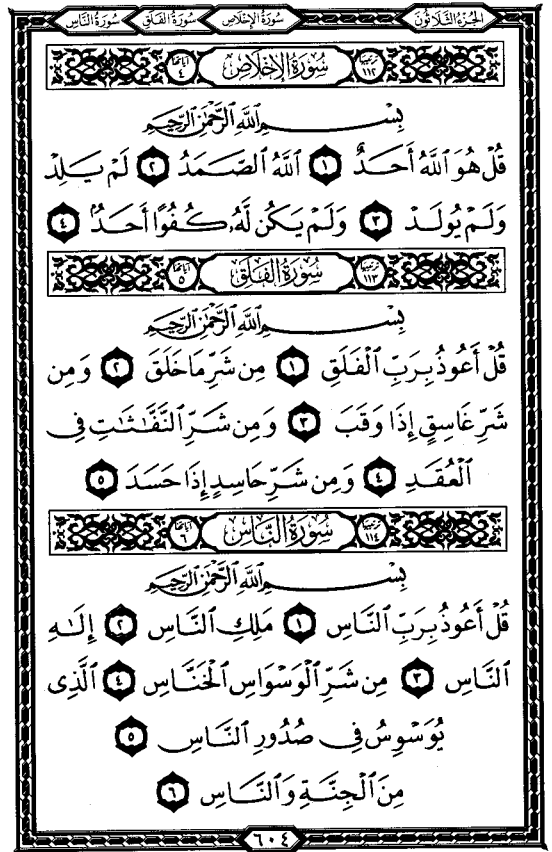 الجزء الثلاثون سورة الإخلاص سورة الفلق سورة الناس
ترتيبها ١١٢ سورة الإخلاص آياتها ٤
بِسْمِ اللَّهِ الرَّحْمَٰنِ الرَّحِيمِ
قُلْ هُوَ ٱللَّهُ أَحَدٌ ١ ٱللَّهُ ٱلصَّمَدُ ٢ لَمْ يَلِدْ
وَلَمْ يُولَدْ ٣ وَلَمْ يَكُن لَّهُۥ كُفُوًا أَحَدٌۢ ٤
ترتيبها ١١٣ سورة الفلق آياتها ٥
بِسْمِ اللَّهِ الرَّحْمَٰنِ الرَّحِيمِ
قُلْ أَعُوذُ بِرَبِّ ٱلْفَلَقِ ١ مِن شَرِّ مَا خَلَقَ ٢ وَمِن
شَرِّ غَاسِقٍ إِذَا وَقَبَ ٣ وَمِن شَرِّ ٱلنَّفَّٰثَٰتِ فِى
ٱلْعُقَدِ ٤ وَمِن شَرِّ حَاسِدٍ إِذَا حَسَدَ ٥
ترتيبها ١١٤ سورة الناس آياتها ٦
بِسْمِ اللَّهِ الرَّحْمَٰنِ الرَّحِيمِ
قُلْ أَعُوذُ بِرَبِّ ٱلنَّاسِ ١ مَلِكِ ٱلنَّاسِ ٢ إِلَٰهِ
ٱلنَّاسِ ٣ مِن شَرِّ ٱلْوَسْوَاسِ ٱلْخَنَّاسِ ٤ ٱلَّذِى
يُوَسْوِسُ فِى صُدُورِ ٱلنَّاسِ ٥
مِنَ ٱلْجِنَّةِ وَٱلنَّاسِ ٦
٦٠٤